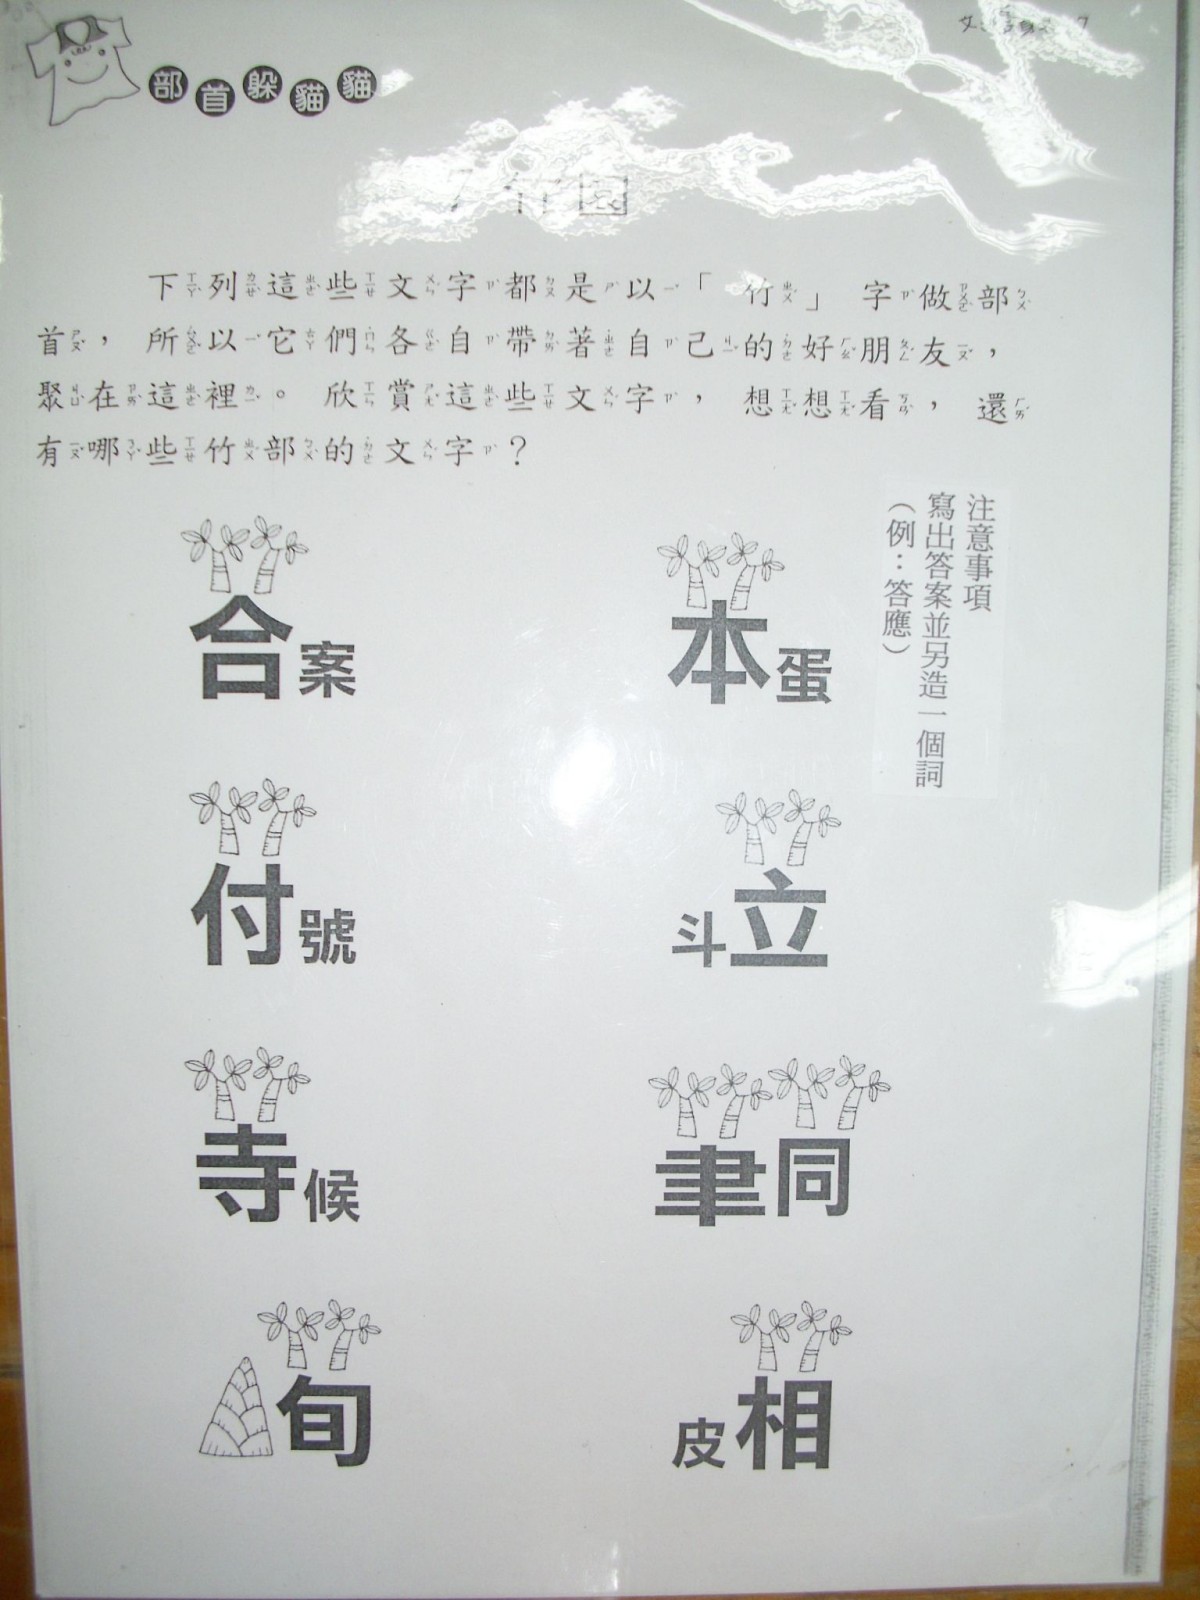 部首躲貓貓
7 竹園
下列這些文字都是以「竹」字做部
首，所以它們各自帶著自己的好朋友，
聚在這裡。欣賞這些文字，想想看，還
有哪些竹部的文字？
注意事項
寫出答案並另造一個詞
（例：答應）
合案
本蛋
付號
斗立
寺候
聿同
旬
皮相